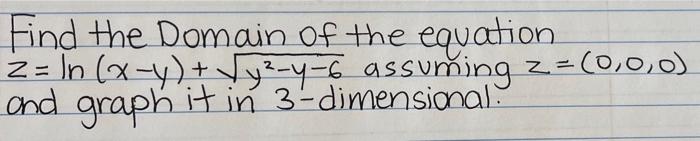 Find the Domain of the equation
z = ln (x-y) + √y²-y-6 assuming z = (0,0,0)
and graph it in 3-dimensional.